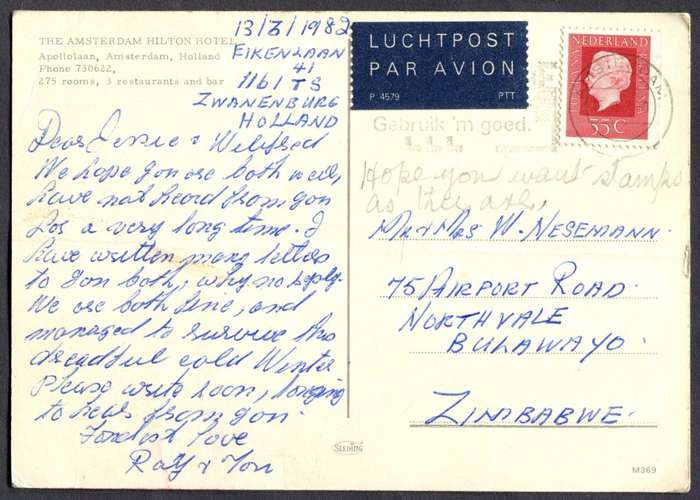 THE AMSTERDAM HILTON HOTEL
Apollolaan, Amsterdam, Holland
Phone 730622,
275 rooms, 3 restaurants and bar
13/3/1982
EIKENLAAN
41
1161 TS
ZWANENBURG
HOLLAND
Dear Jessie & Wilifred
We hope you are both well,
have not heard from you
for a very long time. I
have written many letters
to you both, why no reply.
We are both fine, and
managed to survive this
dreadful cold Winter.
Please write soon, longing
to hear from you.
Fondest love
Ray & Jon
LUCHTPOST
PAR AVION
P 4579
PTT
NEDERLAND
55c
AMSTERDAM
Gebruik 'm goed.
Hope you want stamps
as they are,
Mr & Mrs W. NESEMANN.
75 AIRPORT ROAD.
NORTHVALE
BULAWAYO.
ZIMBABWE.
SLEDING
M369